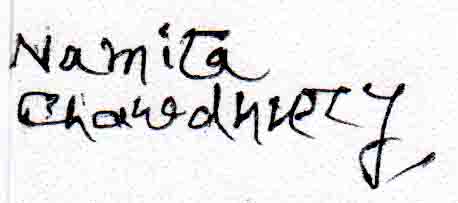 Namita
Chawdhury